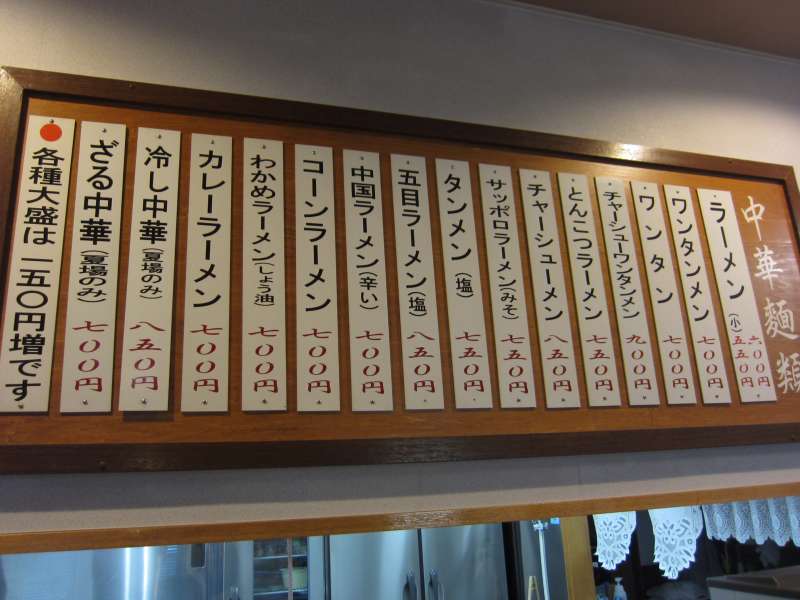 中華麺類
ラーメン 六〇〇円
(小) 五五〇円
ワンタンメン 七〇〇円
ワンタン 七〇〇円
チャーシューワンタンメン 九〇〇円
とんこつラーメン 七五〇円
チャーシューメン 八五〇円
サッポロラーメン(みそ) 七五〇円
タンメン(塩) 七五〇円
五目ラーメン(塩) 八五〇円
中国ラーメン(辛い) 七〇〇円
コーンラーメン 七〇〇円
わかめラーメン(しょう油) 七〇〇円
カレーラーメン 七〇〇円
冷し中華(夏場のみ) 八五〇円
ざる中華(夏場のみ) 七〇〇円
各種大盛は一五〇円増です